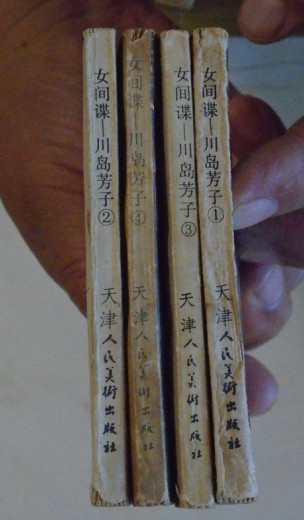 女间谍—川岛芳子② 天津人民美術出版社
女间谍—川岛芳子④ 天津人民美術出版社
女间谍—川岛芳子③ 天津人民美術出版社
女间谍—川岛芳子① 天津人民美術出版社